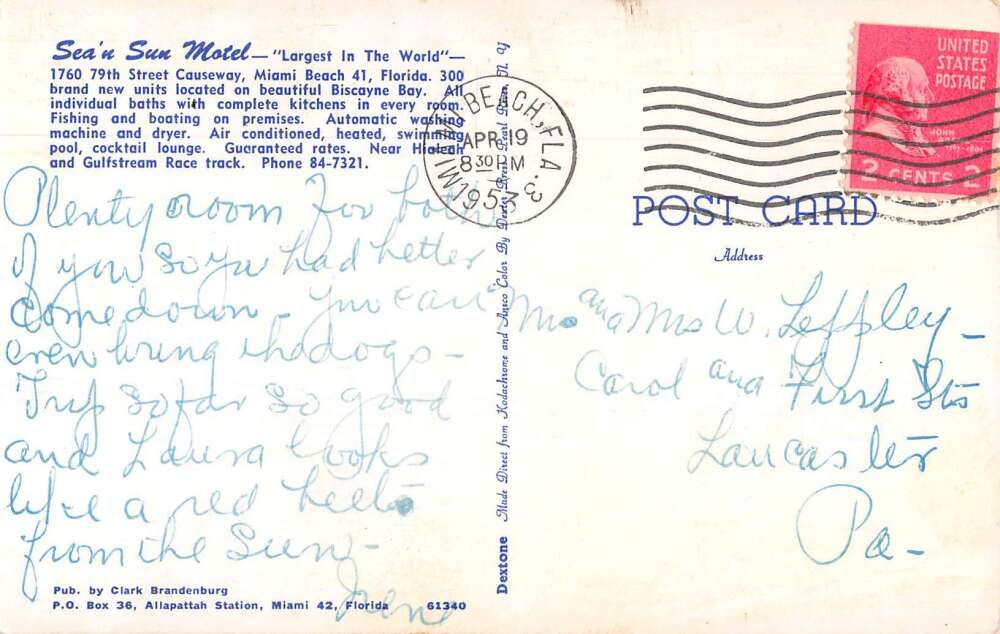 Sea'n Sun Motel — "Largest In The World" —
1760 79th Street Causeway, Miami Beach 41, Florida. 300
brand new units located on beautiful Biscayne Bay. All
individual baths with complete kitchens in every room.
Fishing and boating on premises. Automatic washing
machine and dryer. Air conditioned, heated, swimming
pool, cocktail lounge. Guaranteed rates. Near Hialeah
and Gulfstream Race track. Phone 84-7321.
Plenty room for both
of you so ya had better
come down - you can
even bring the dogs -
Trip so far so good
and Laura looks
like a red beet
from the Sun -
Irene
Pub. by Clark Brandenburg
P.O. Box 36, Allapattah Station, Miami 42, Florida 61340
Dextone Made Direct from Kodachrome and Ansco Color By Dexter Press, Pearl River, N. Y.
MIAMI BEACH, FLA. 3
APR 19
8 30 PM
195
UNITED
STATES
POSTAGE
JOHN
2 CENTS 2
POST CARD
Address
Mr and Mrs W. Leffley -
Carol and First Sts
Lancaster
Pa -